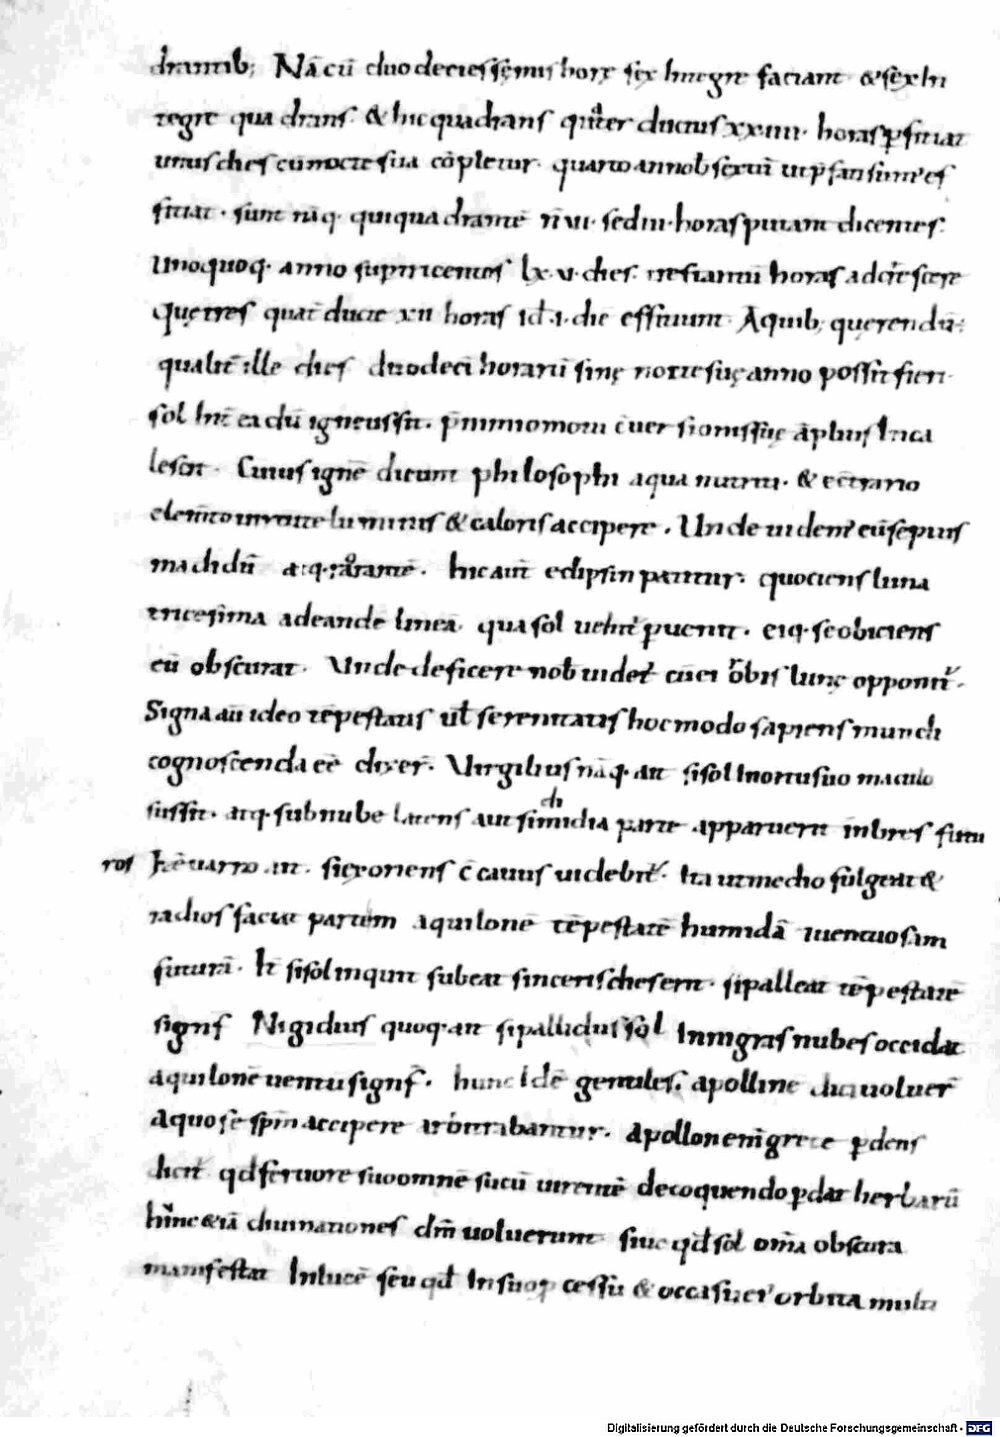 drantib; Nā cū duodecies semis hore sex integre faciant & sex in
tegre quadrans. & hic quadrans quater ductus xxiiii. horas pficiat
unus dies cū nocte sua cōpletur. quarto anno bsextū
ficiat. sunt nāq. qui quadrantē n̄ vi. sed iii. horas putant dicentes.
Unoquoq. anno supra trecentos lx.v. dies. tres tantū horas adcrescere
Que tres quat ducte xii horas id.i. diē efficiunt. A quib; querendū.
qualit ille dies duodecī horarū sine nocte sue anno possit fieri.
sol int ea dū igneus sit. p nimio motu
lescit. Cuius ignē dicunt philosophi aqua nutriri. & e c̄trario
elemto luminis & caloris accipere. Unde uidem eū sepius
madidū atq. rorantē. hic aut eclipsin patitur. quociens luna
tricesima ad eande linea. qua sol uehit puenit. eiq. se obiciens
eū obscurat. Unde deficere nob uidet. cū ei orbis lune opponit.
Signa aū ideo tēpestatis ut serenitatis hoc modo sapiens mundi
cognoscenda eē dixer. Virgilius nāq. ait si sol in ortu suo maculo
sus sit. atq. sub nube latens aut si midia parte apparuerit imbres futu
ros Itē varro ait. si exoriens c̄cauus uidebit. Ita ut medio fulgeat &
radios faciat partim aquilonē tēpestatē humidā uentuosam
futurā. It si sol inquit subeat sinceris dies erit. si palleat tēpestatē
signf Nigidius quoq. ait si pallidus sol In nigras nubes occidat
aquilonē uentu signf. hunc idē gentiles. apollinē uoluer
A quo se spm accipere arbitrabantur. Apollon enī grece pdens
dicit. qd feruore suo omnē sucū uirentē decoquendo pdat herbarū
hinc & iā diuinationes dm̄ uoluerunt siue qd sol om̄a obscura
manifestat In lucē seu qd In suo pcessu & occasu ei' orbita multi